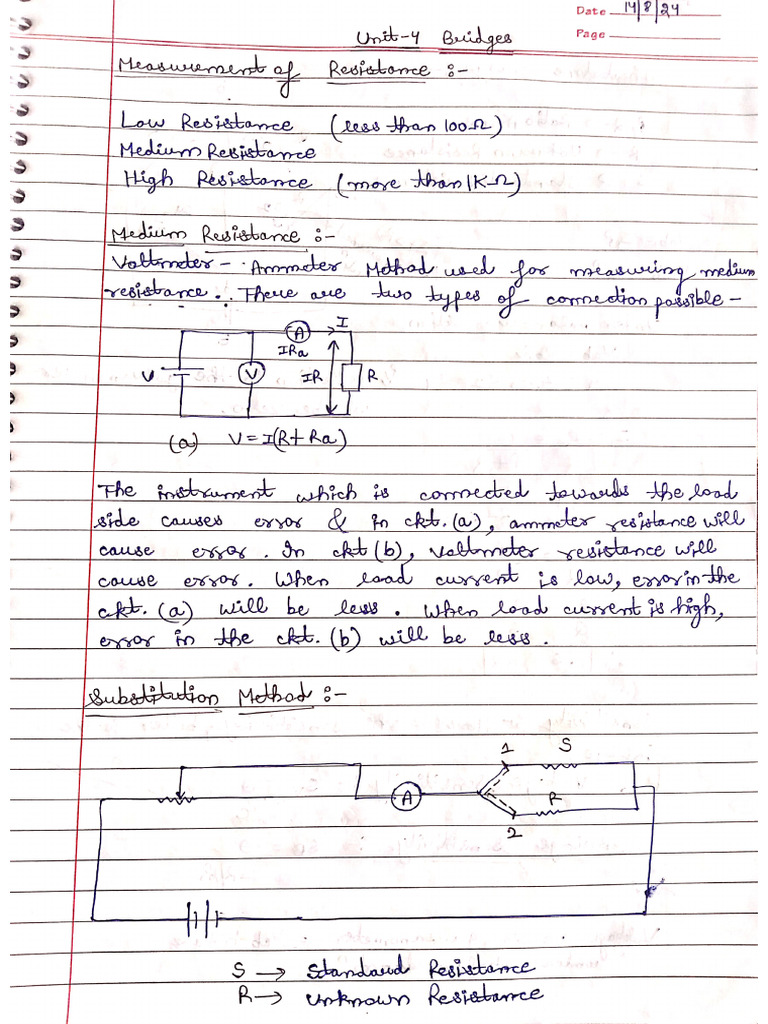 Date 14/8/24
Page
Unit-4 Bridges
Measurement of Resistance :-
Low Resistance (less than 100Ω)
Medium Resistance
High Resistance (more than 1KΩ)
Medium Resistance :-
Voltmeter - Ammeter Method used for measuring medium
resistance. There are two types of connection possible -
A I
IRa
V V IR R
(a) V = I(R+Ra)
The instrument which is connected towards the load
side causes error & in ckt. (a), ammeter resistance will
cause error. In ckt (b), voltmeter resistance will
cause error. When load current is low, error in the
ckt. (a) will be less. When load current is high,
error in the ckt. (b) will be less.
Substitution Method :-
1 S
A R
2
S → Standard Resistance
R → Unknown Resistance